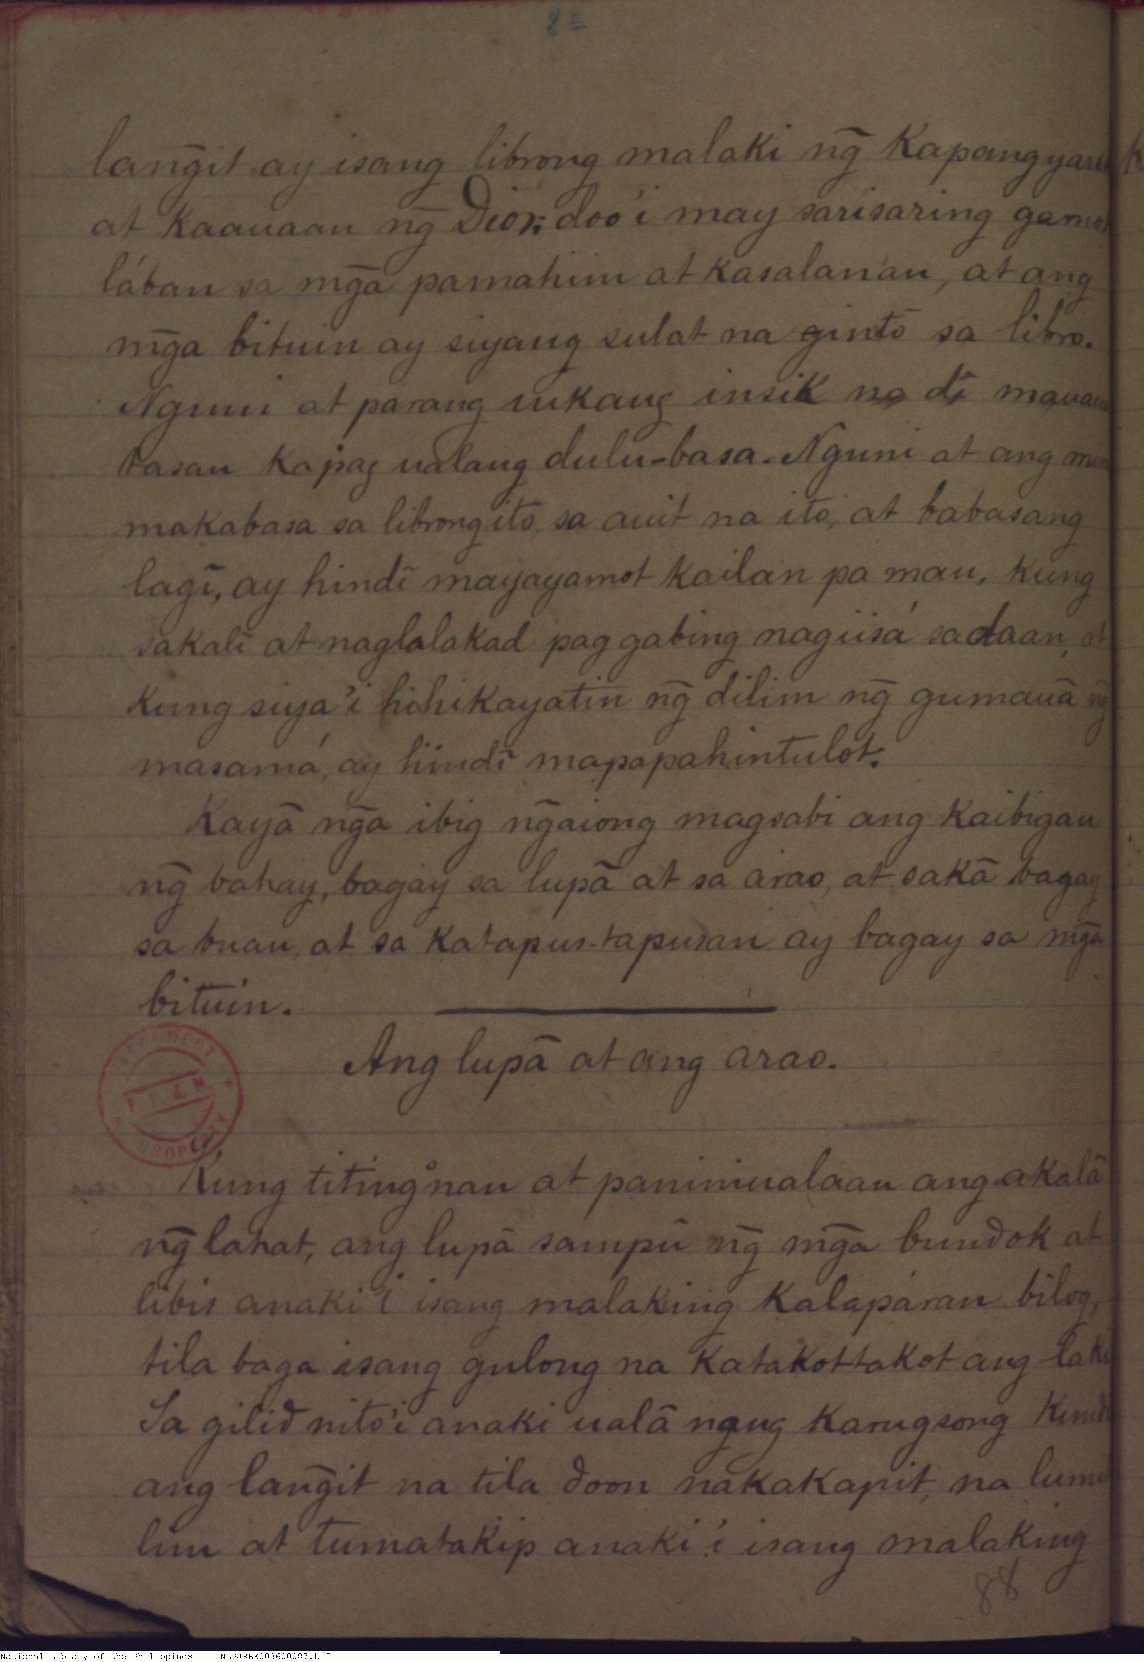 lan̄git ay isang librong malaki n̄g Kapangyari
at Kaauaan n̄g Dios; doo'i may sarisaring gamot
lában sa mn̄ga pamahiin at kasalanan, at ang
mn̄ga bituin ay siyang sulat na gintô sa libro.
Nguni at parang wikang insik na dî mauaua
basan kapag ualang dulu-basa. Nguni at ang
makabasa sa librong ito, sa auit na ito, at babasang
lagî, ay hindî mayayamot kailan pa man, kung
sakalî at naglalakad pag gabing nagiisá sa daan, at
kung siya'i hihikayatin n̄g dilim n̄g gumauâ n̄g
masamá, ay hindî mapapahintulot.
Kayâ n̄ga ibig n̄gaiong magsabi ang kaibigan
n̄g bahay, bagay sa lupâ at sa arao, at sakâ bagay
sa buan, at sa katapus-tapusan ay bagay sa mn̄ga
bituin.
Ang lupâ at ang arao.
Kung titingnan at paniniualaan ang akalâ
n̄g lahat, ang lupâ sampû n̄g mn̄ga bundok at
libis anaki'i isang malaking kalapáran bilog,
tila baga isang gulong na katakottakot ang laki
Sa gilid nito'i anaki ualâ nang karugsong kundi
ang lan̄git na tila doon nakakapit, na lumu
lim at tumatakip anaki'i isang malaking
88